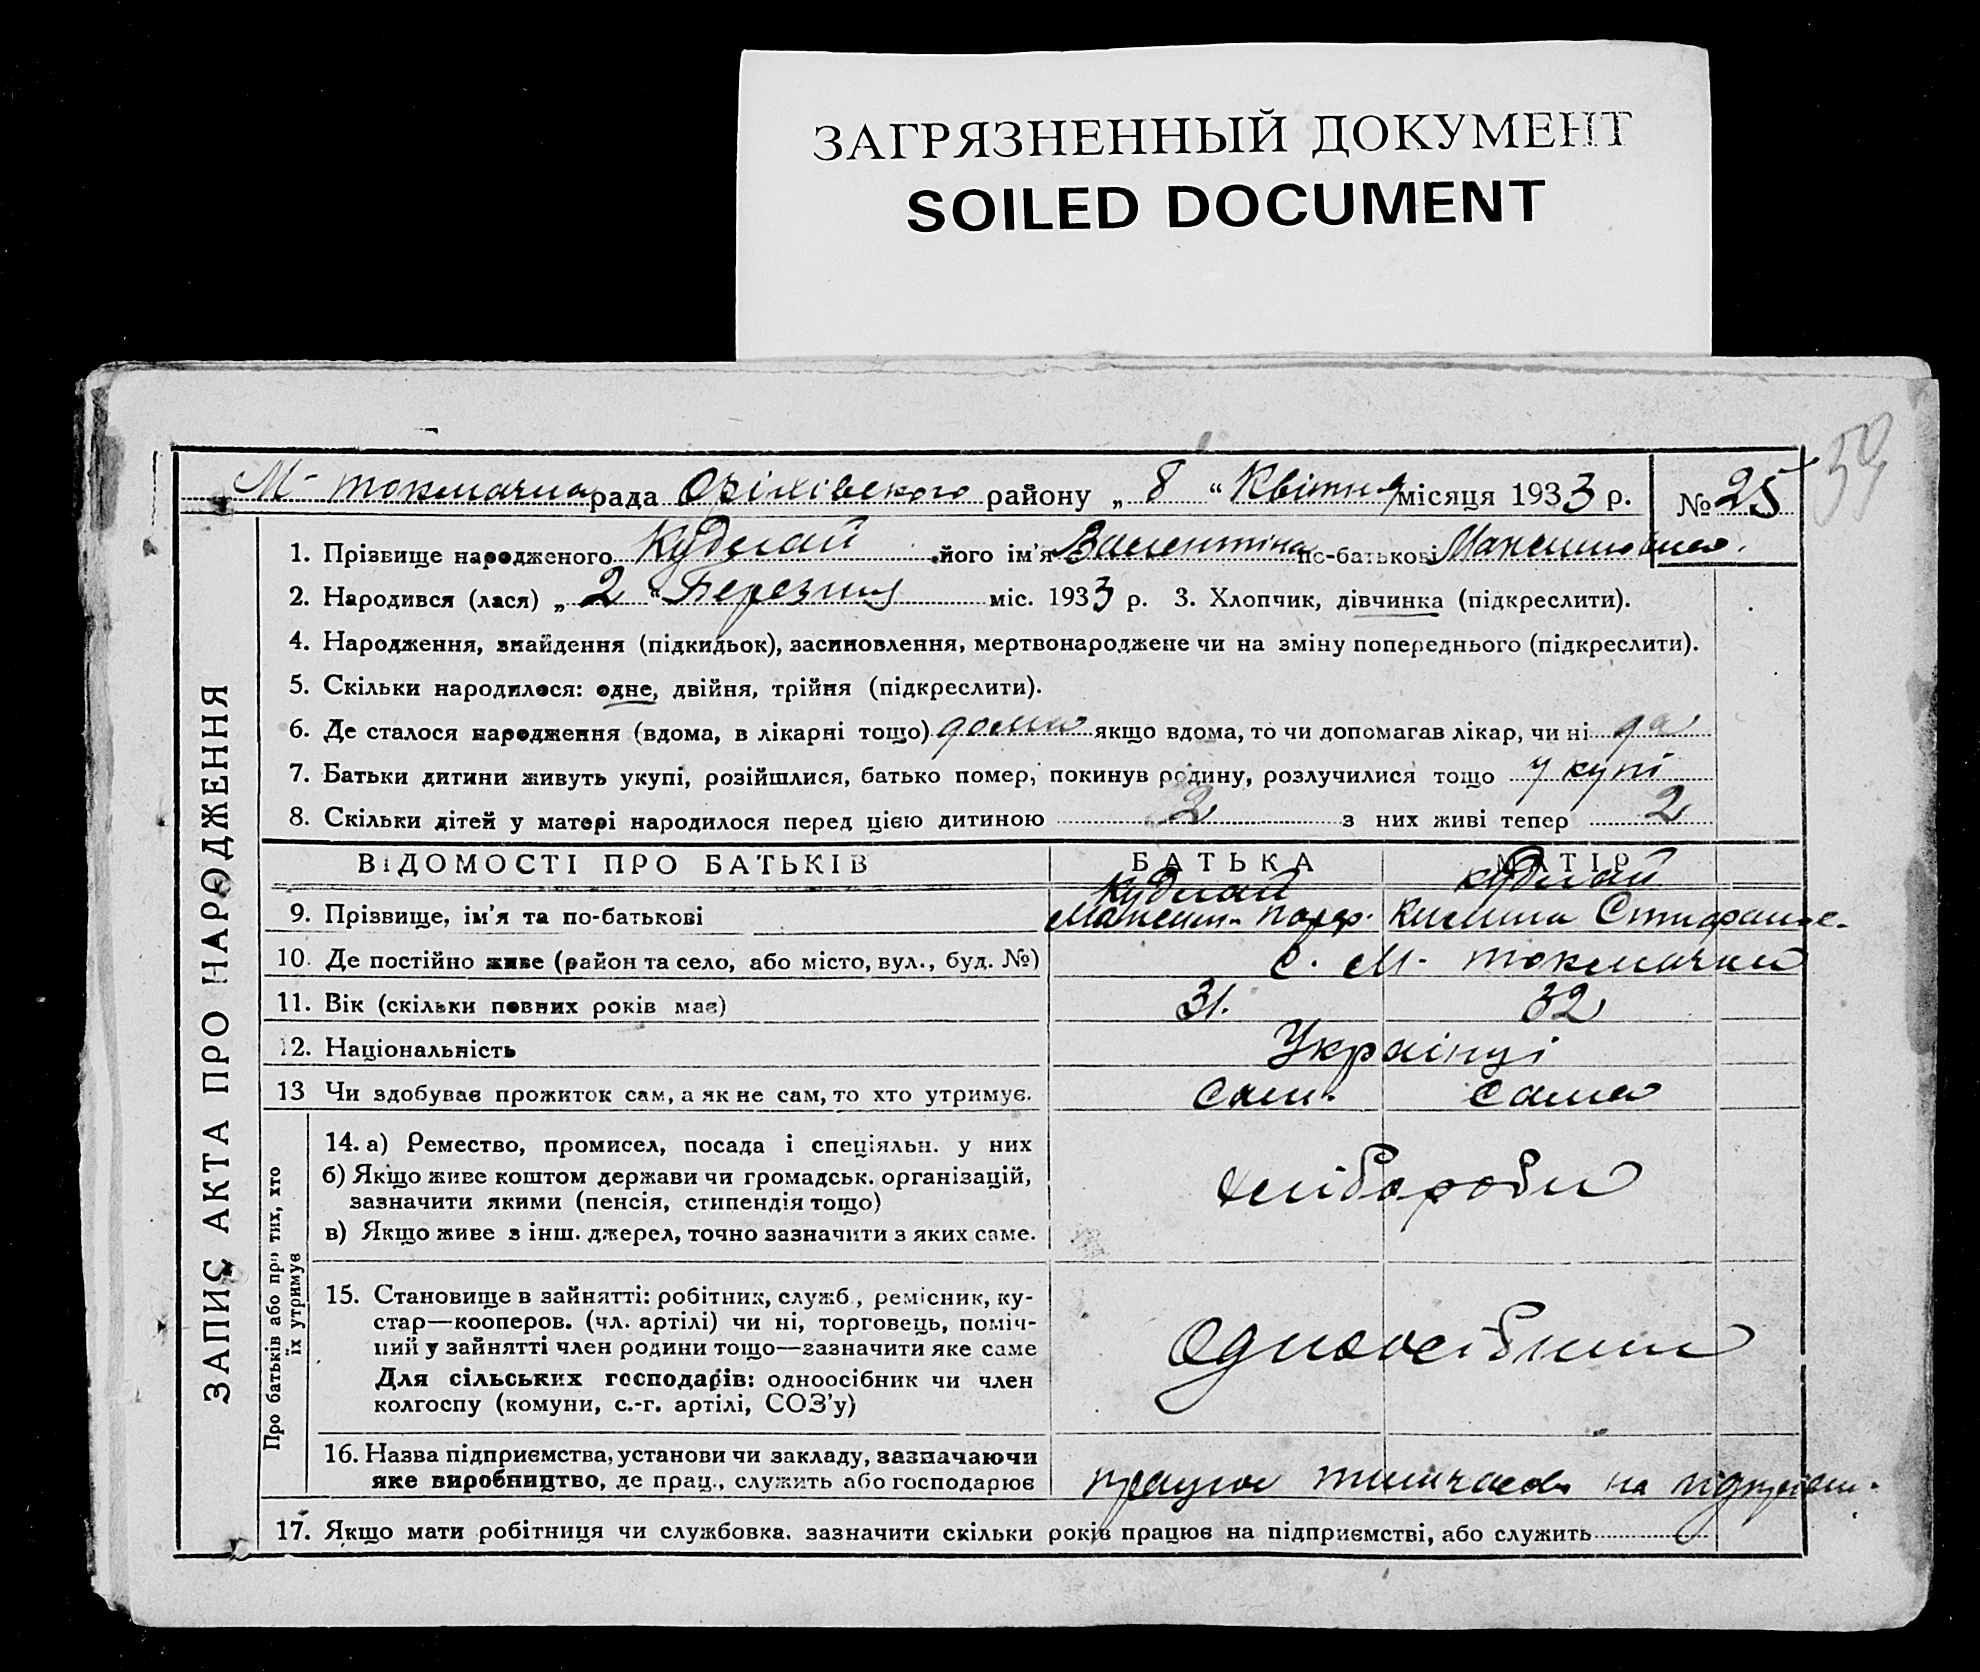 ЗАГРЯЗНЕННЫЙ ДОКУМЕНТ
SOILED DOCUMENT
59
М- токмачка рада Оріхівського району „ 8 “ Квітня місяця 1933 р. № 25
ЗАПИС АКТА ПРО НАРОДЖЕННЯ
1. Прізвище народженого Кудлай його ім'я Валентина по-батькові Максимовна.
2. Народився (лася) „ 2 “ Березня міс. 1933 р. 3. Хлопчик, дівчинка (підкреслити).
4. Народження, знайдення (підкидьок), засиновлення, мертвонароджене чи на зміну попереднього (підкреслити).
5. Скільки народилося: одне, двійня, трійня (підкреслити).
6. Де сталося народження (вдома, в лікарні тощо) дома якщо вдома, то чи допомагав лікар, чи ні да
7. Батьки дитини живуть укупі, розійшлися, батько помер, покинув родину, розлучилися тощо у купі
8. Скільки дітей у матері народилося перед цією дитиною 2 з них живі тепер 2
ВІДОМОСТІ ПРО БАТЬКІВ БАТЬКА МАТІР
Кудлай Кудлай
9. Прізвище, ім'я та по-батькові Максим
10. Де постійно живе (район та село, або місто, вул., буд. №) С. М- токмачки
11. Вік (скільки повних років має) 31. 32
12. Національність Українці
13 Чи здобуває прожиток сам, а як не сам, то хто утримує. сам. сама
Про батьків або про тих, хто їх утримує
14. а) Ремество, промисел, посада і спеціяльн. у них
б) Якщо живе коштом держави чи громадськ. організацій,
зазначити якими (пенсія, стипендія тощо)
хліборобы
в) Якщо живе з інш. джерел, точно зазначити з яких саме.
15. Становище в зайнятті: робітник, служб., ремісник, ку-
стар—кооперов. (чл. артілі) чи ні, торговець, поміч-
ний у зайнятті член родини тощо—зазначити яке саме
Одноосібники
Для сільських господарів: одноосібник чи член
колгоспу (комуни, с.-г. артілі, СОЗ'у)
16. Назва підприємства, установи чи закладу, зазначаючи
яке виробництво, де прац., служить або господарює працює тимчасово на
17. Якщо мати робітниця чи службовка, зазначити скільки років працює на підприємстві, або служить